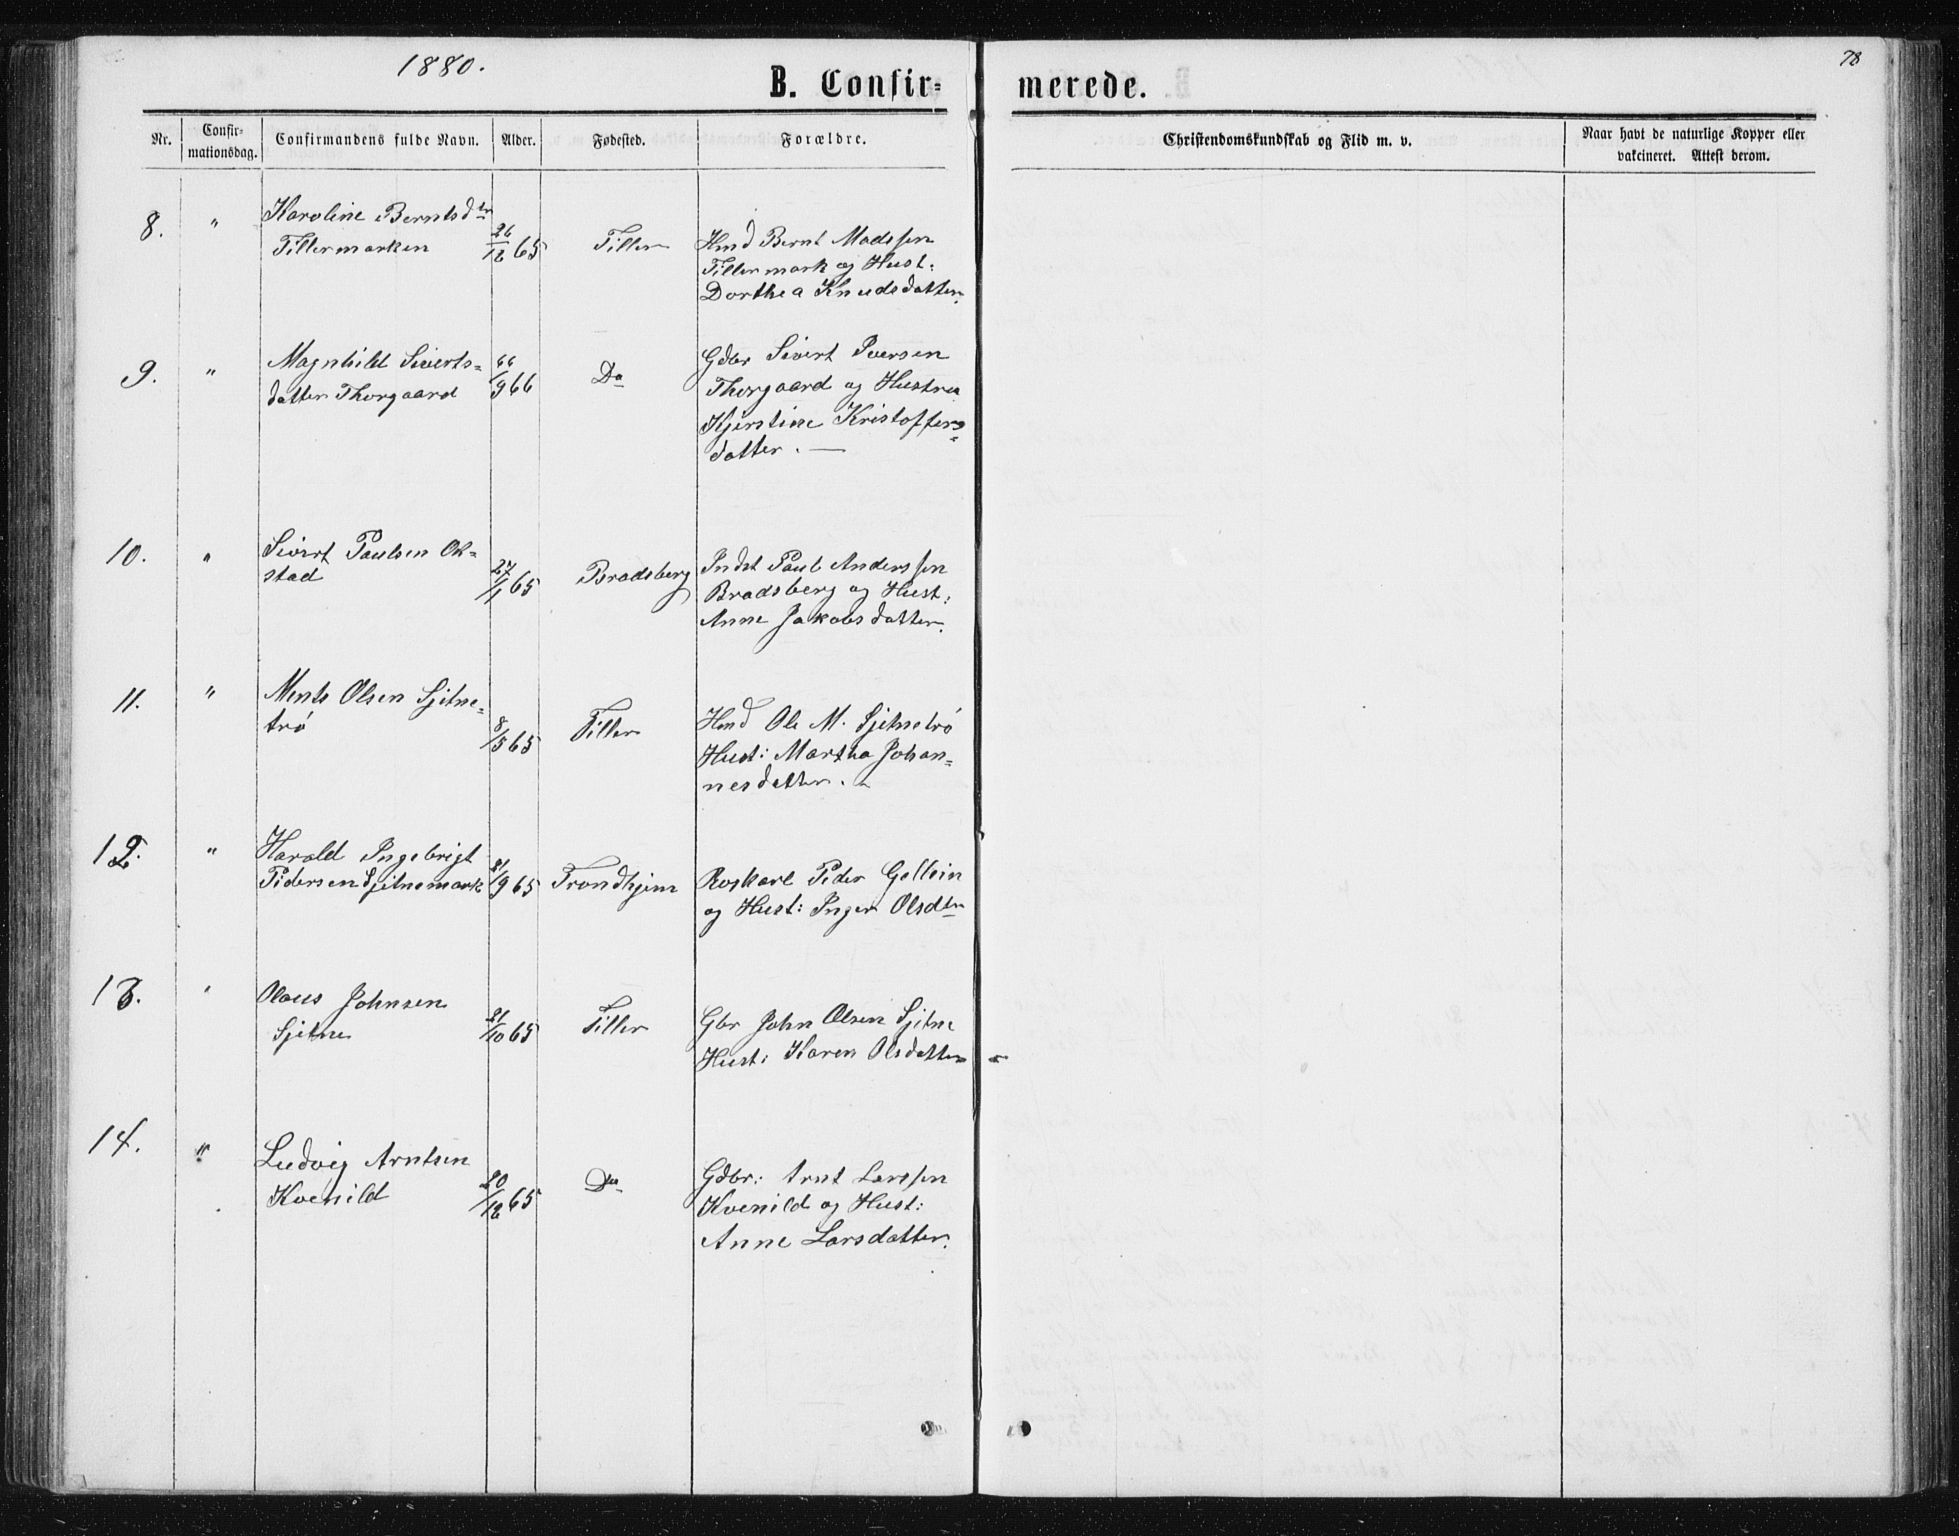 1880.
78
B. Confir=
merede.
Nr.
Confir-
mationsdag.
Confirmandens fulde Navn.
Alder.
Fødested.
Forældre.
Christendomskundskab og Flid m. v.
Naar havt de naturlige Kopper eller
vakcineret. Attest derom.
8. " Karoline Berntsdtr
Tillermarken 26/12 65 Tiller
Hmd Bernt Madssen
Tillermark og Hust:
Dorthea Knudsdatter.
9. " Magnhild Siverts=
datter Thorgaard /9 66 Do
Gdbr Sivert Iversen
Thorgaard og Hustru
Kjerstine Kristoffers=
datter. —
10. " Sivert Paulsen Ok=
stad 27/1 65 Bradsberg
Indst Paul Anderssen
Bradsberg og Hust:
Anne Jakobsdatter.
11. " Ments Olsen Sjetne=
trø 8/5 65 Tiller
Hmd Ole M. Sjetnetrø
Hust: Martha Johan=
nesdatter. -
12. " Harald Ingebrigt
Pedersen Sjetnemark 21/9 65 Trondhjem
Roskarl Peder Gellein
og Hust: Inger Olsdtr
13. " Olaus Johnsen
Sjetne 21/10 65 Tiller
Gbr John Olsen Sjetne
Hust: Karen Olsdatter -
14. " Ludvig Arntsen
Kvenild 20/12 65 Do
Gdbr: Arnt Larssen
Kvenild og Hust:
Anne Larsdatter.